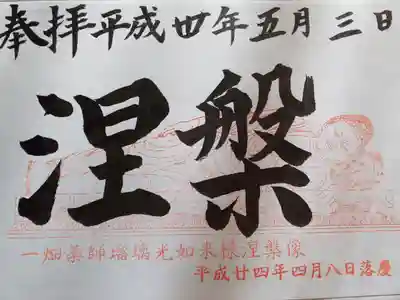 奉拝平成丗年五月三日
涅槃
一畑薬師瑠璃光如来様涅槃像
平成廿四年四月八日落慶